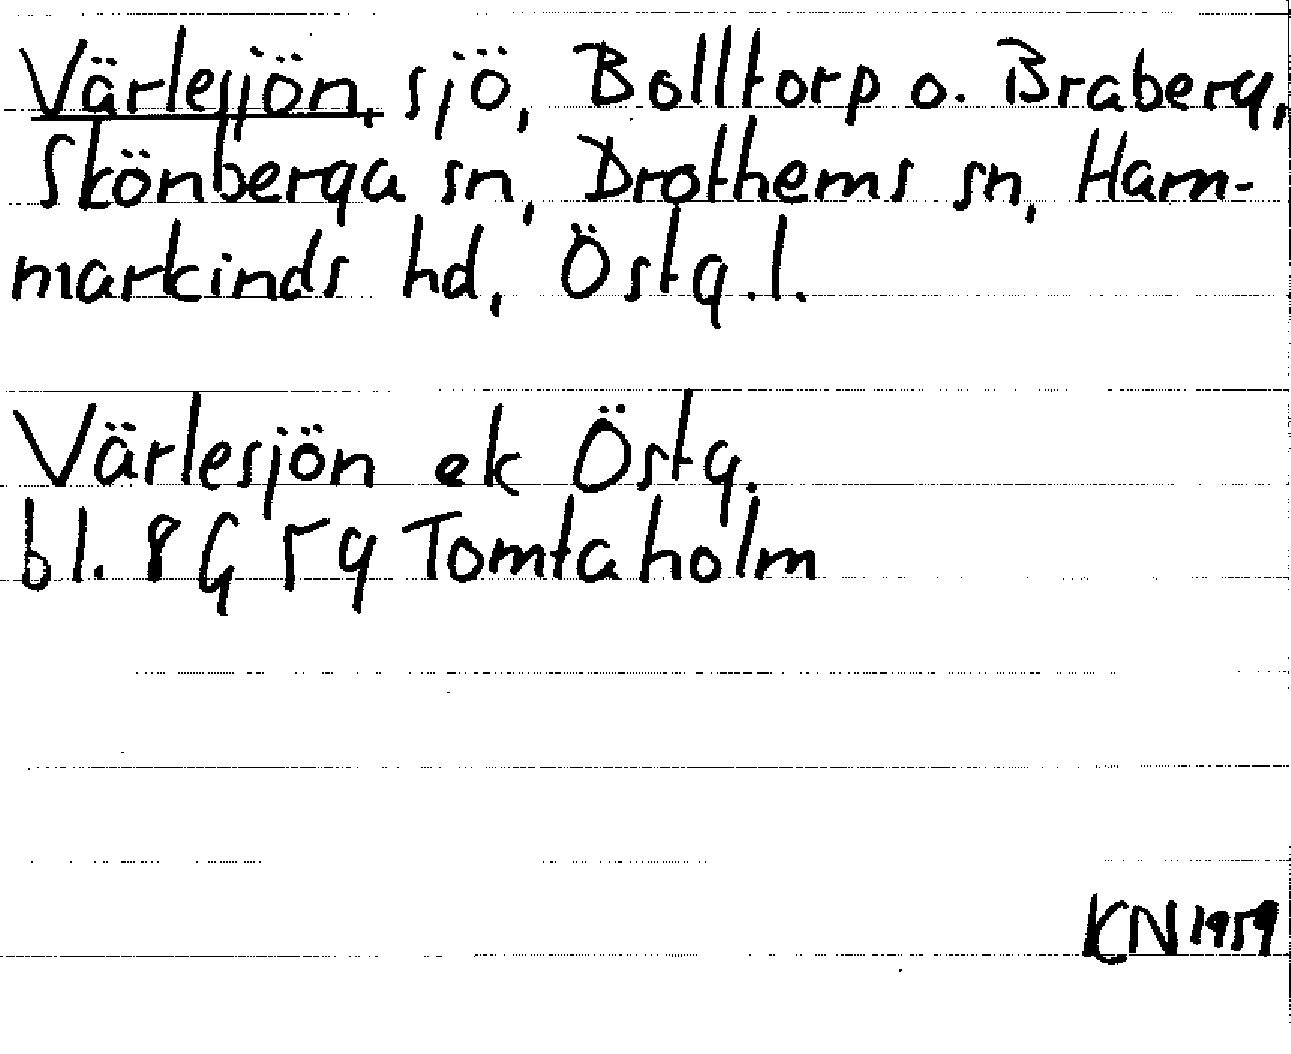 Värlesjön, sjö, Bolltorp o. Braberg,
Skönberga sn, Drothems sn, Ham-
markinds hd, Östg.l.
Värlesjön ek Östg.
bl. 8 G 5g Tomtaholm
KN 1959